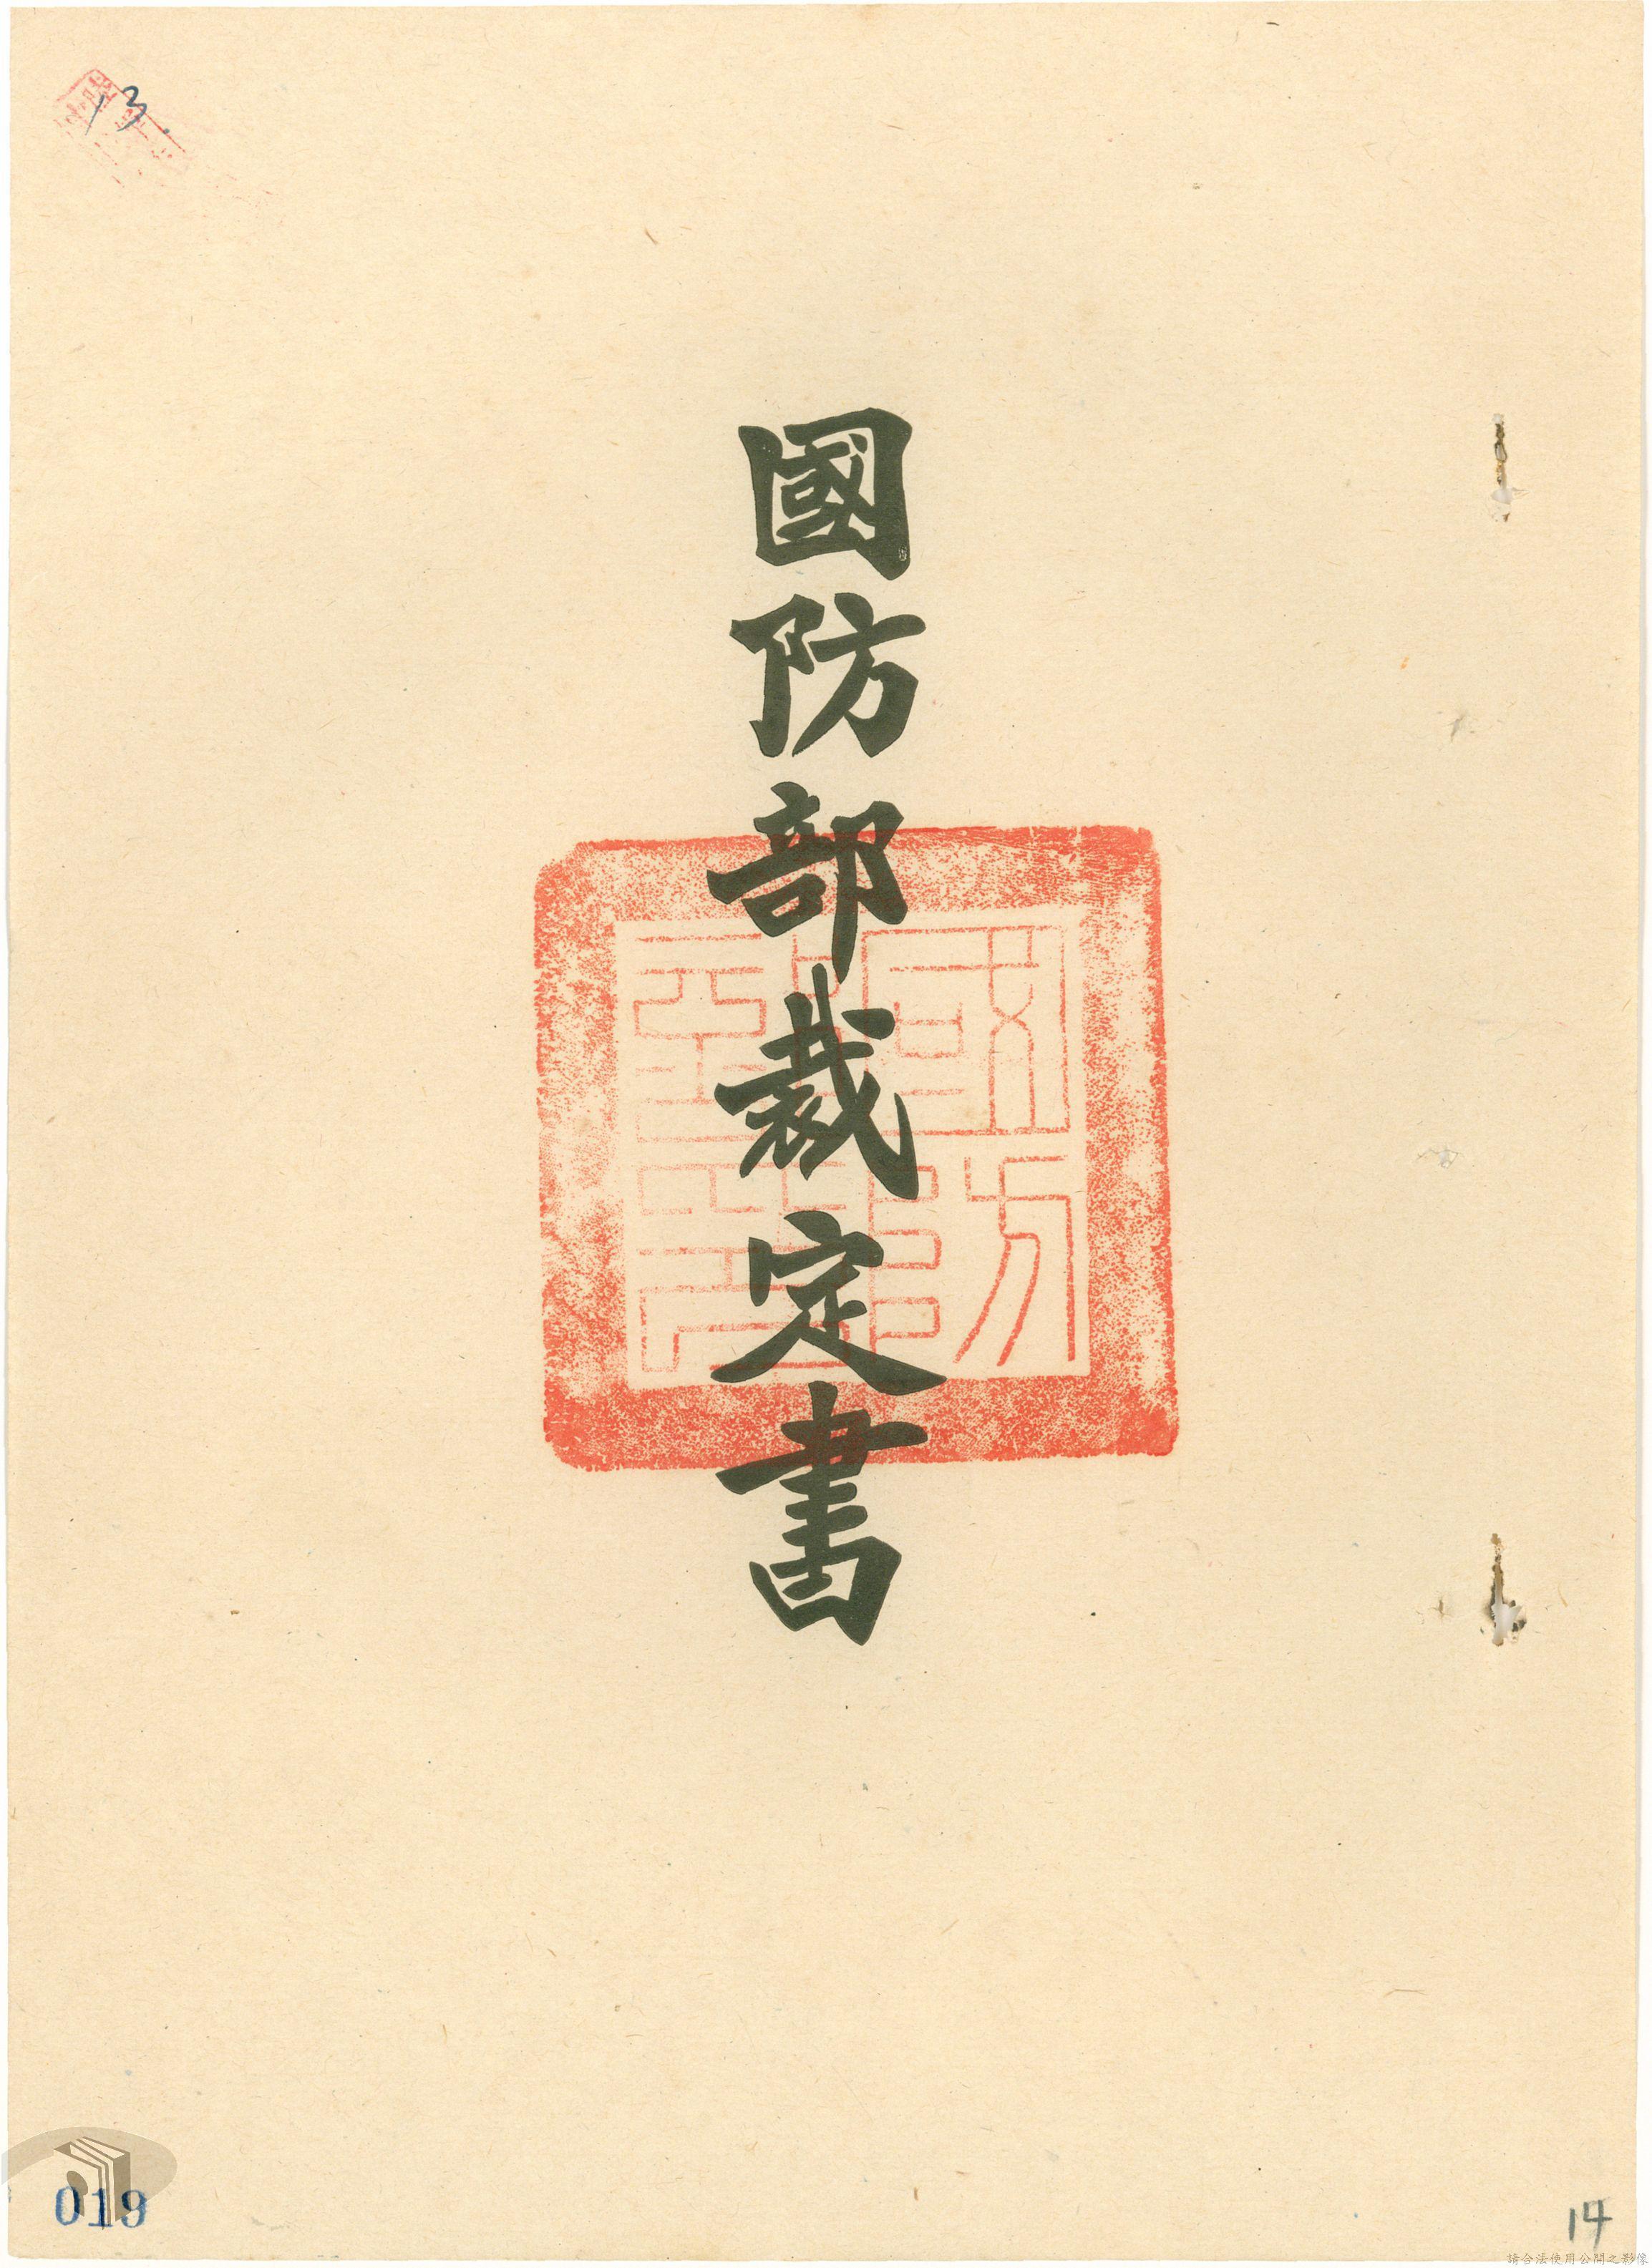 13.
國防部裁定書
國防部印
019
14
請合法使用公開之影像